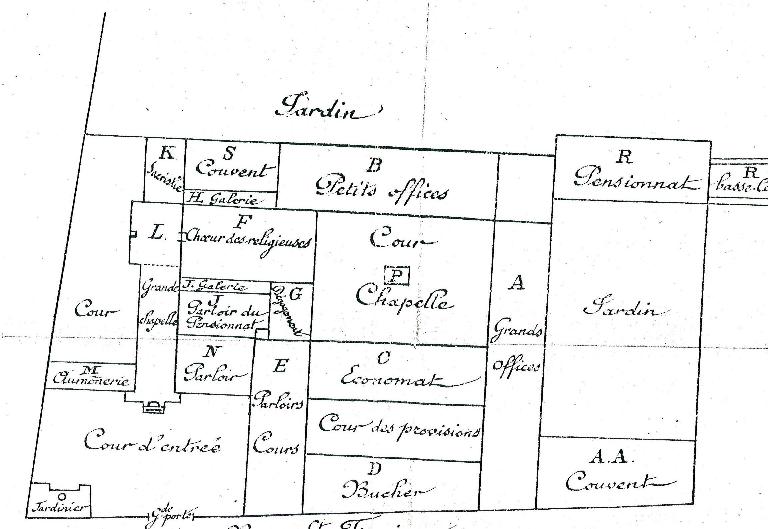 Jardin
K
Sacristie
S
Couvent
B
Petits offices
R
Pensionnat
R
basse-Co
H. Galerie
F
Chœur des religieuses
L.
Cour
P
Chapelle
A
Grands
offices
Jardin
Grande
chapelle
J. Galerie
J
Parloir du
Pensionnat
G
Dégagement
Cour
M
Aumônerie
N
Parloir
E
Parloirs
Cours
C
Economat
Cour des provisions
D
Bucher
A.A.
Couvent
Cour d'entrée
O
Jardinier
Gde porte